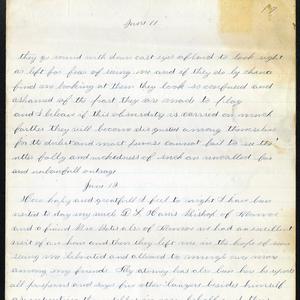 June 11
they go round with down cast eyes afraid to look right
or left for fear of seeing me and if they do by chance
find me looking at them they look so confused and
ashamed of the part they are made to play
and I believe if this absurdity is carried on much
farther they will become disgusted among themselves
for the dullest and most furious cannot fail to see the
utter folly and wickedness of such an uncalled for
and unlawful outrage
June 12
How happy and greatful I feel to night I have been
visited to day my
and a friend Mrs also of we had an excellent
visit of an hour and then they left me in the hope of soon
seeing me liberated and allowed to mingle once more
among my friends My attorney has also been has he reports
all prospers and says five other Lawyers besides himself